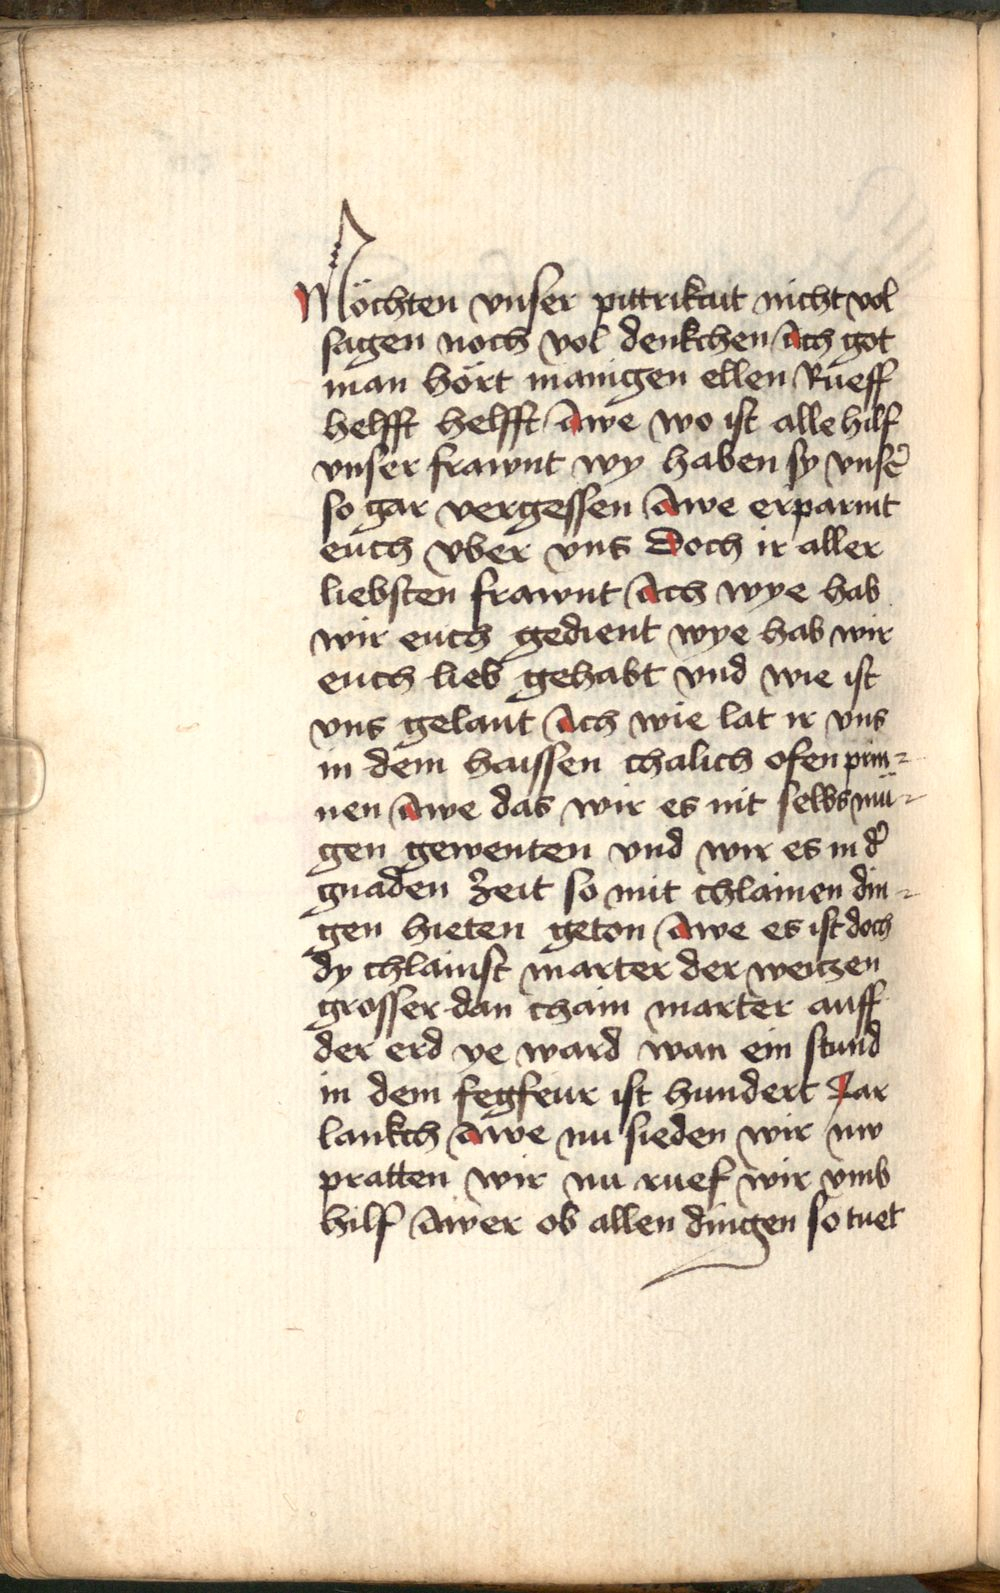 Möchten vnser pittrikait nicht vol
sagen noch vol denkchen Ach got
man hört manigen ellen Rueff
helfft helfft Awe wo ist alle hilf
vnser frawnt wy haben sy vnser̄
so gar vergessen Awe erparmt
euch vber vns Doch ir aller
liebsten frawnt Ach wye hab
wir euch gedient wye hab wir
euch lieb gehabt vnd wie ist
vns gelant Ach wie lat ir vns
in dem haissen chalich ofen prin-
nen Awe das wir es nit selbs mü-
gen gewenten vnd wir es in d̛
gnaden Zeit so mit chlainen din-
gen hieten geton Awe es ist doch
dy chlainst marter der weiczen
grosser dan chain marter auff
der erd ye ward wan ein stund
in dem fegfeur ist hundert Jar
lankch Awe nu sieden wir nw
pratten wir nu ruef wir vmb
hilf Awer ob allen dingen so tuet